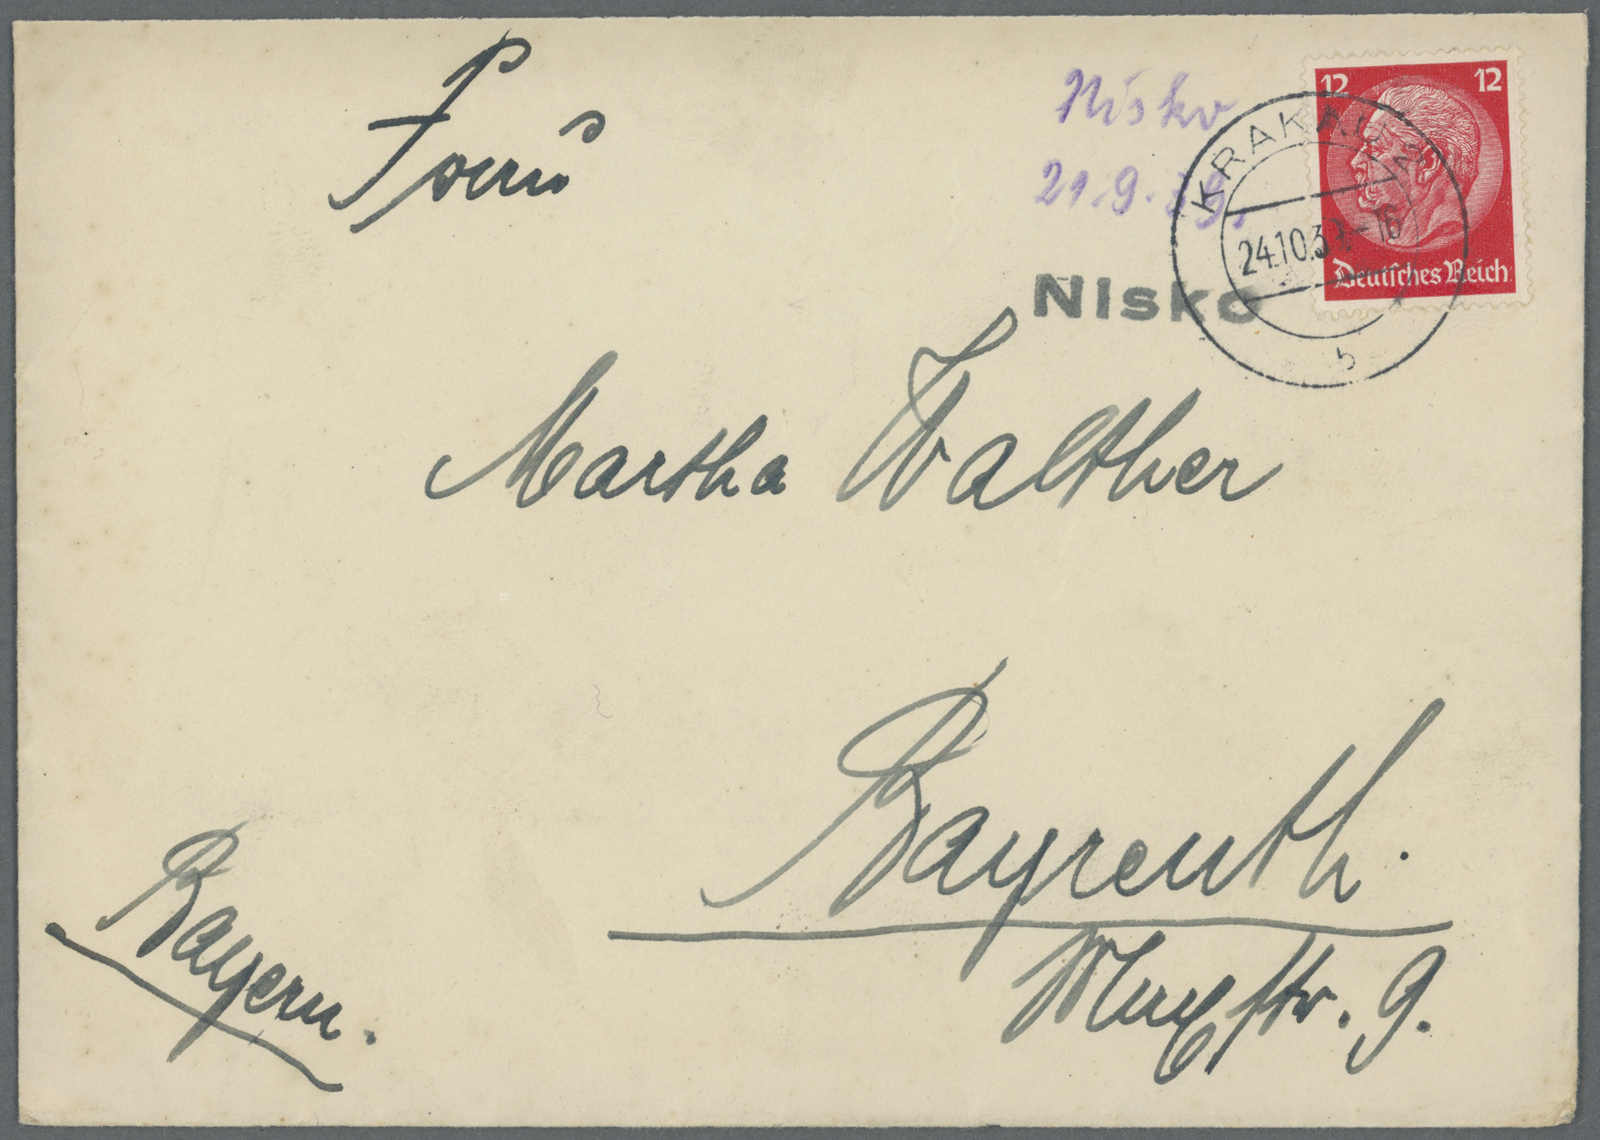 Frau
Nisko
21.9.39.
12 12
Deutsches Reich
KRAKAU
24.10.39-16
Nisko
b
Martha Walther
Bayreuth.
str. 9.
Bayern.